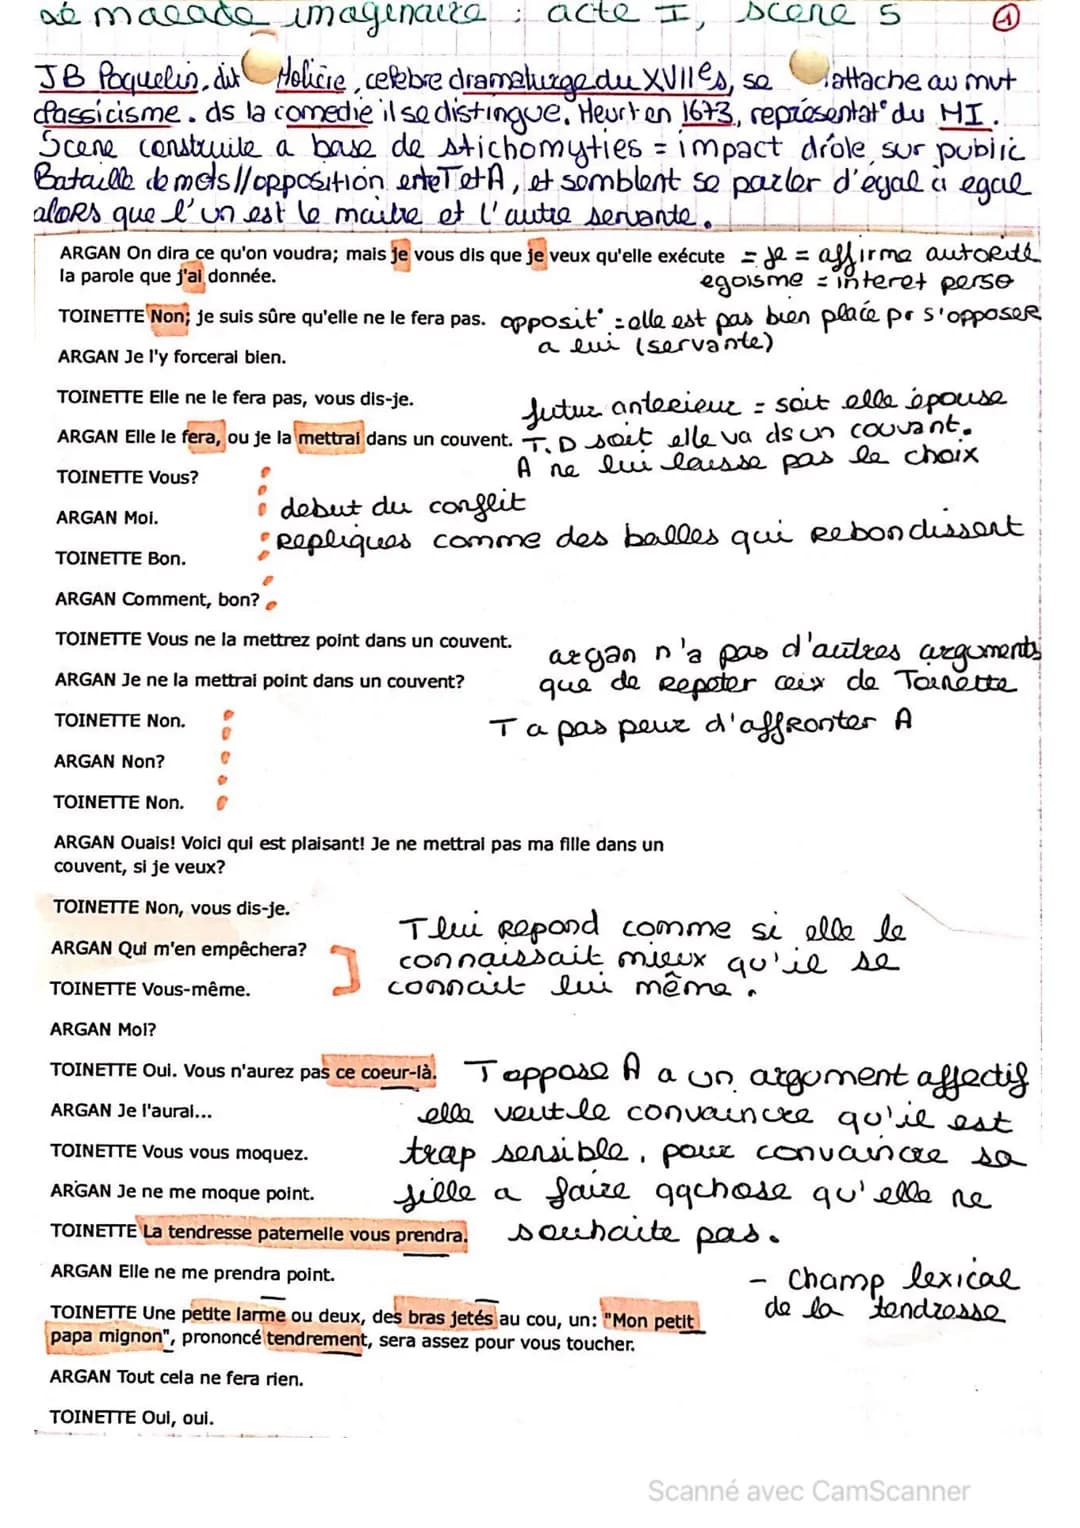 Le malade imaginaire : acte I, scene 5 1
JB Poquelin, dit Molière, celebre dramaturge du XVIIes, se rattache au mvt
classicisme. ds la comedie il se distingue. Meurt en 1673, représentat° du MI.
Scene construite a base de stichomyties = impact drôle sur public
Bataille de mots // opposition entre T et A, et semblent se parler d'égal à egal
alors que l'un est le maitre et l'autre servante.
ARGAN On dira ce qu'on voudra; mais je vous dis que je veux qu'elle exécute = je = affirme autorité
la parole que j'ai donnée. egoïsme = interet perso
TOINETTE Non; je suis sûre qu'elle ne le fera pas. opposit° = elle est pas bien placée pr s'opposer
a lui (servante)
ARGAN Je l'y forcerai bien.
TOINETTE Elle ne le fera pas, vous dis-je.
futur anterieur = soit elle épouse
ARGAN Elle le fera, ou je la mettrai dans un couvent. T.D soit elle va ds un couvant.
A ne lui laisse pas le choix
TOINETTE Vous?
debut du conflit
ARGAN Moi.
repliques comme des balles qui rebondissent
TOINETTE Bon.
ARGAN Comment, bon?
TOINETTE Vous ne la mettrez point dans un couvent.
argan n'a pas d'autres arguments
ARGAN Je ne la mettrai point dans un couvent? que de repeter ceux de Toinette
TOINETTE Non. T a pas peur d'affronter A
ARGAN Non?
TOINETTE Non.
ARGAN Ouais! Voici qui est plaisant! Je ne mettrai pas ma fille dans un
couvent, si je veux?
TOINETTE Non, vous dis-je.
T lui repond comme si elle le
ARGAN Qui m'en empêchera?
connaissait mieux qu'il se
TOINETTE Vous-même. connait lui même.
ARGAN Moi?
TOINETTE Oui. Vous n'aurez pas ce coeur-là. T oppose A a un argument affectif
ARGAN Je l'aurai... elle veut le convaincre qu'il est
TOINETTE Vous vous moquez. trop sensible, pour convaincre sa
ARGAN Je ne me moque point. fille a faire qqchose qu'elle ne
TOINETTE La tendresse paternelle vous prendra. souhaite pas.
ARGAN Elle ne me prendra point. - champ lexical
de la tendresse
TOINETTE Une petite larme ou deux, des bras jetés au cou, un: "Mon petit
papa mignon", prononcé tendrement, sera assez pour vous toucher.
ARGAN Tout cela ne fera rien.
TOINETTE Oui, oui.
Scanné avec CamScanner